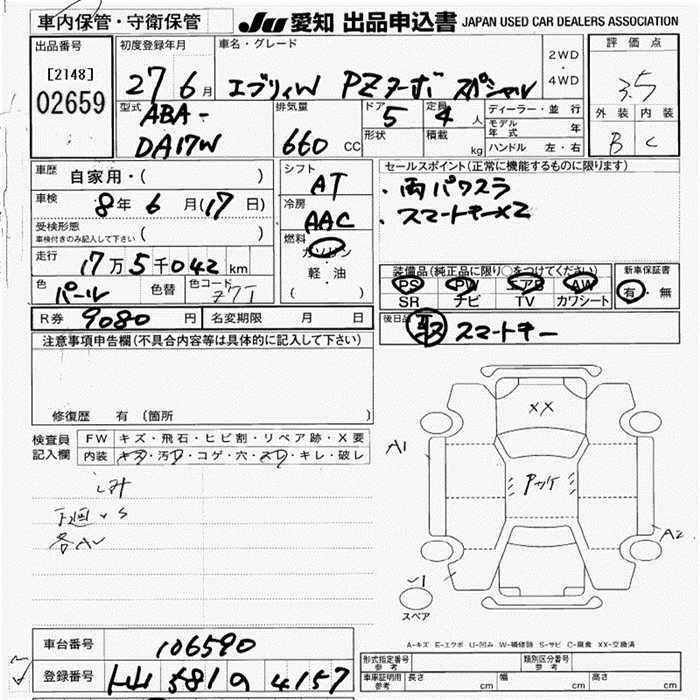 車内保管・守衛保管
JU 愛知 出品申込書 JAPAN USED CAR DEALERS ASSOCIATION
出品番号
[2148]
02659
初度登録年月
27 6月
車名・グレード
エブリイW PZターボ スペシャル
2WD
・
4WD
評価点
3.5
外装 内装
B C
型式
ABA-
DA17W
排気量
660 CC
ドア
5
形状
定員
4人
積載 kg
ディーラー・並行
モデル年式 年
ハンドル 左・右
車歴 自家用・( )
車検 8年6月(17日)
受検形態
車検付きのみ記入して下さい ( )
走行 17万5千042km
色 パール 色替 色コード Z7T
シフト
AT
冷房
AAC
燃料
ガソリン
・
軽・油
( )
セールスポイント(正常に機能するものに限ります)
・両パワスラ
・スマートキーX2
装備品(純正品に限り○をつけてください)
PS PW エアB AW
SR ナビ TV カワシート
新車保証書
有・無
R券 9080円 名変期限 月 日
後日品 取 スマートキー
注意事項申告欄(不具合内容等は具体的に記入して下さい)
修復歴 有 〔箇所 〕
検査員
記入欄
FW キズ・飛石・ヒビ割・リペア跡・X要
内装 キズ・汚レ・コゲ・穴・スレ・キレ・破レ
シミ
下廻 S
各AU
XX
A1
A2
スペア
A-キズ E-エクボ U-凹み W-補修跡 S-サビ C-腐食 XX-交換済
車台番号 106590
登録番号 581 4157
形式指定番号
参考
類別区分番号
参考
車庫証明用
参考
長さ cm 幅 cm 高さ cm